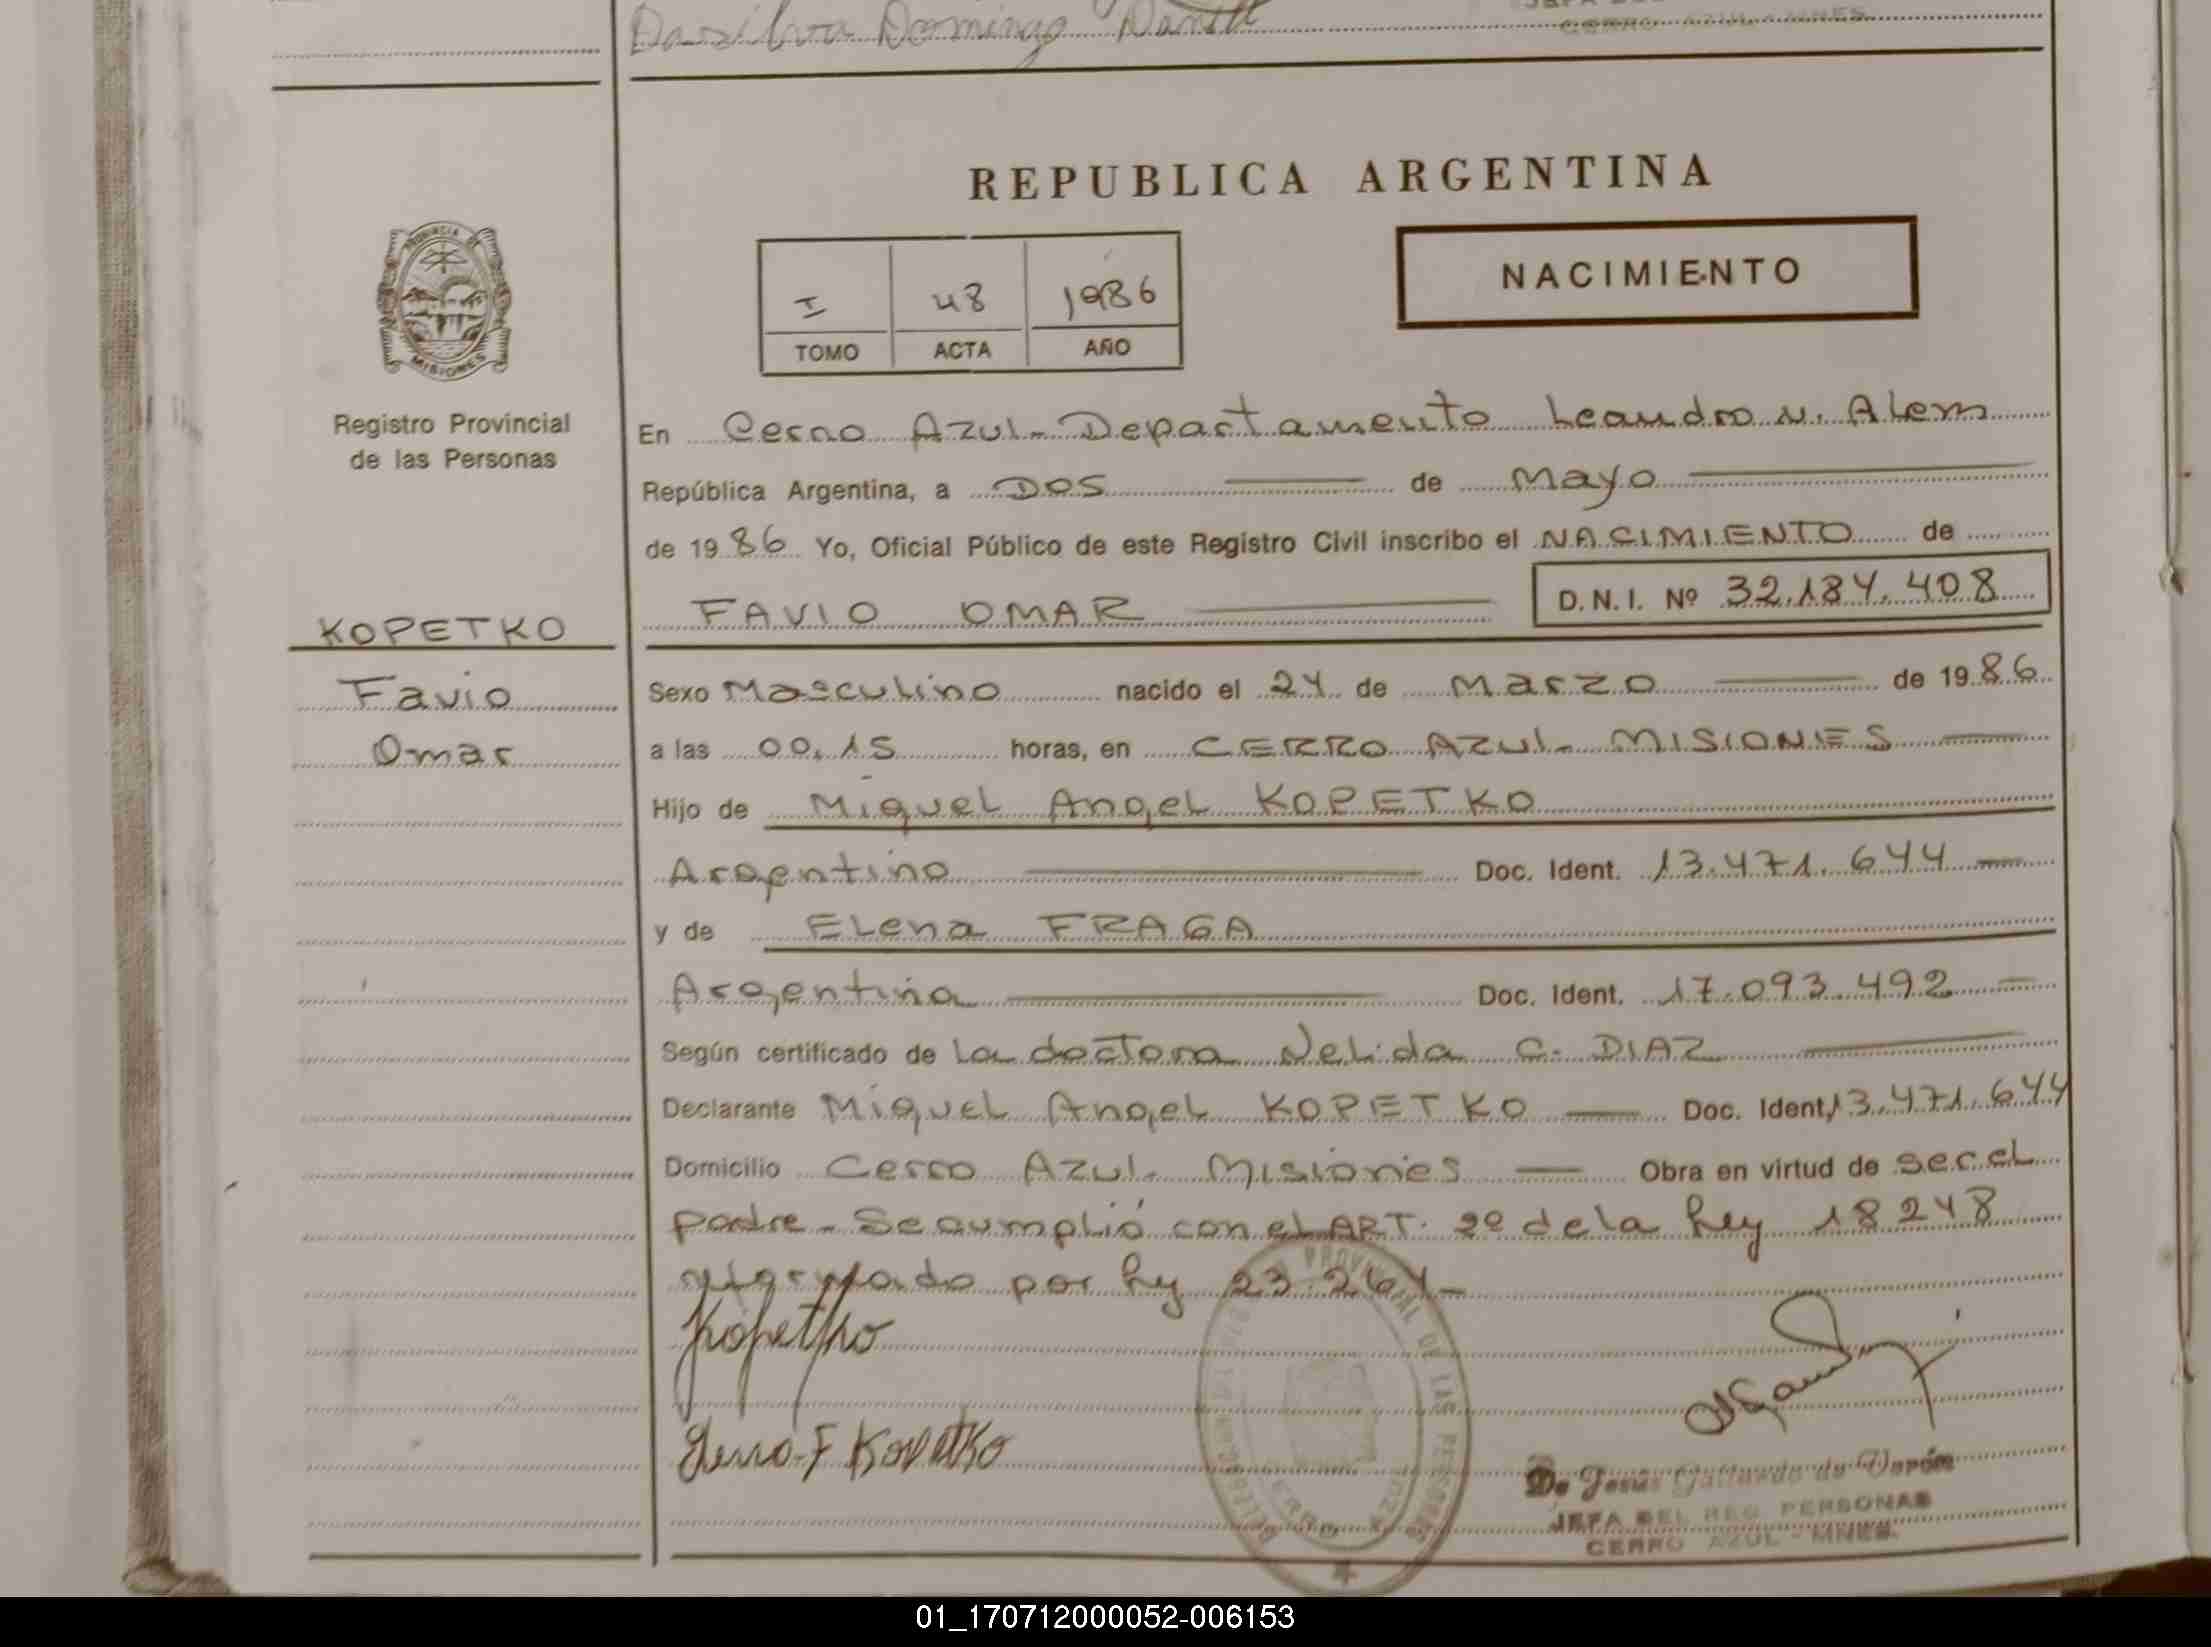 Dasilva Domingo
CERRO AZUL - MNES.
REPUBLICA ARGENTINA
PROVINCIA DE
MISIONES
I 48 1986
TOMO ACTA AÑO
NACIMIENTO
Registro Provincial
de las Personas
KOPETKO
Favio
Omar
En Cerro Azul - Departamento Leandro N. Alem
República Argentina, a DOS de Mayo
de 1986 Yo, Oficial Público de este Registro Civil inscribo el NACIMIENTO de
FAVIO OMAR D.N.I. Nº 32.184.408
Sexo Masculino nacido el 24 de Marzo de 1986
a las 00.15 horas, en CERRO AZUL - MISIONES
Hijo de Miguel Angel KOPETKO
Argentino Doc. Ident. 13.471.644
y de Elena FRAGA
Argentina Doc. Ident. 17.093.492
Según certificado de La doctora Nelida C. DIAZ
Declarante Miguel Angel KOPETKO Doc. Ident. 13.471.644
Domicilio Cerro Azul - Misiones Obra en virtud de ser el
padre - Se cumplió con el ART. 2º de la Ley 18248
por ley 23.264 -
Kopetko
F Kopetko
PROVINCIAL DE LAS PERSONAS
CERRO AZUL
De Jesús Gallardo de
JEFA DEL REG. PERSONAS
CERRO AZUL - MNES.
01_170712000052-006153